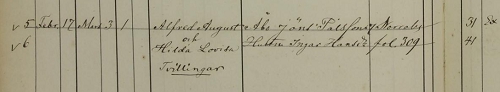 v 5 Febr. 17 Mars 3 1 Alfred August Åbo Jöns Pålsson Norreholm 31
v 6 och Hilda Lovisa Hustru Ingar Hansd. fol. 309 41
Tvillingar